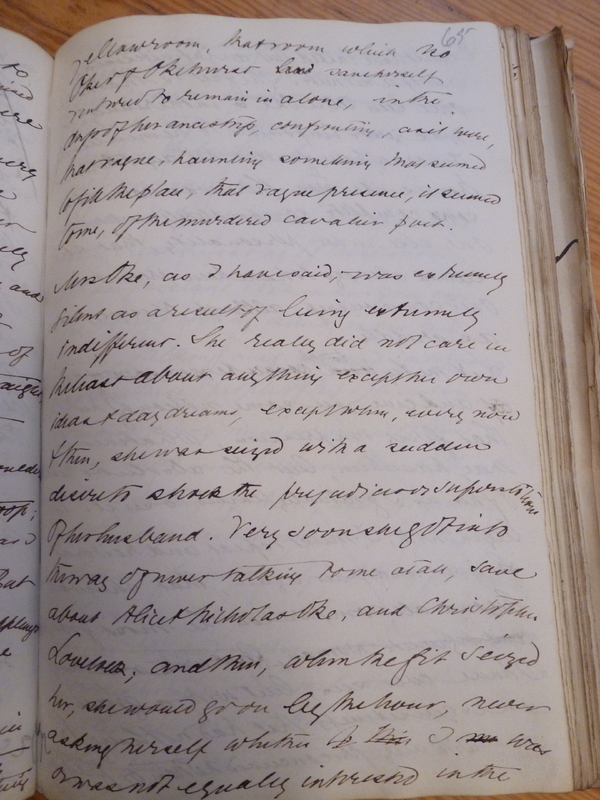 65
yellow room, that room which no
Oke of Okehurst save herself
ventured to remain in alone, in the
dress of her ancestress, confronting, as it were,
that vague, haunting something that seemed
to fill the place, that vague presence, it seemed
to me, of the murdered cavalier poet.
Mrs Oke, as I have said, was extremely
silent as a result of being extremely
indifferent. She really did not care in
the least about anything except her own
ideas & day dreams, except when, every now
& then, she was seized with a sudden
desire to shock the prejudices or superstitions
of her husband. Very soon she got into
the way of never talking to me at all, save
about Alice & Nicholas Oke, and Christopher
Lovelock, and then, when the fit seized
her, she would go on by the hour, never
asking herself whether I was
or was not equally interested in the